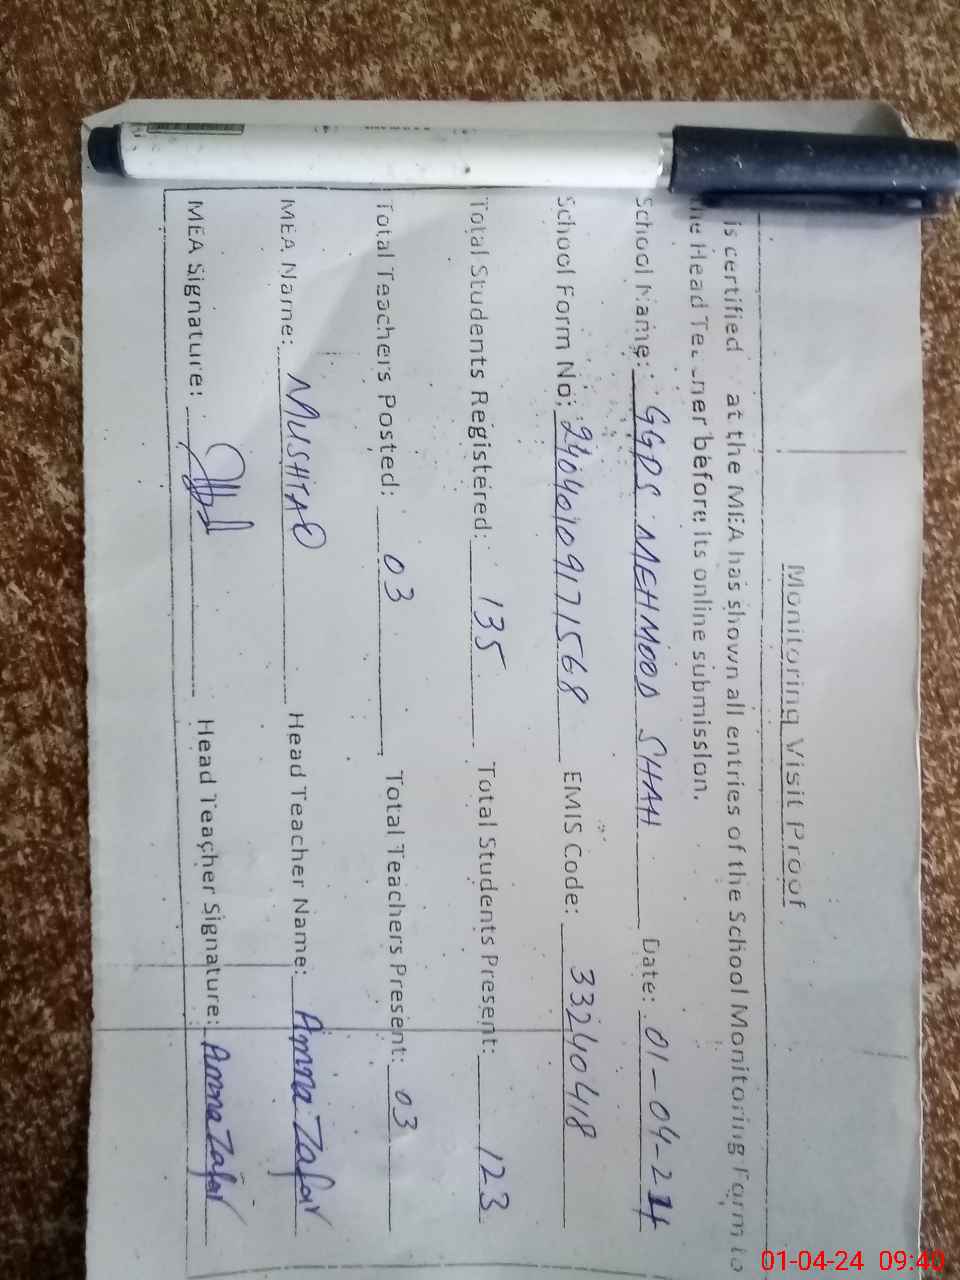 Monitoring Visit Proof
is certified at the MEA has shown all entries of the School Monitoring Form to
the Head Teacher before its online submission.
School Name: GGPS MEHMOOD SHAH Date: 01-04-24
School Form No: 24040109171568 EMIS Code: 33240418
Total Students Registered: 135 Total Students Present: 123
Total Teachers Posted: 03 Total Teachers Present: 03
MEA Name: MUSHTAQ Head Teacher Name: Amna Zafar
MEA Signature: Head Teacher Signature: Amna Zafar
01-04-24 09:40